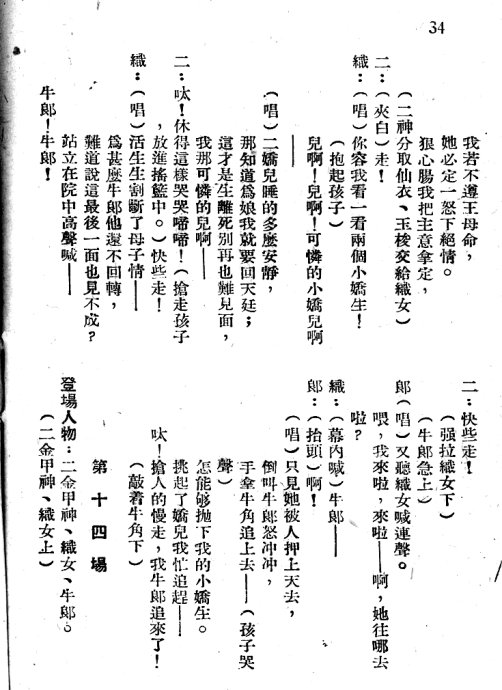 34
我若不遵王母命，
她必定一怒下絕情。
狠心腸我把主意拿定，
（二神分取仙衣、玉梭交給織女）
二：（夾白）走！
織：（唱）你容我看一看兩個小嬌生！
（抱起孩子）
兒啊！兒啊！可憐的小嬌兒啊
——
（唱）二嬌兒睡的多麼安靜，
那知道爲娘我就要回天廷；
這才是生離死別再也難見面，
我那可憐的兒啊——
二：呔！休得這樣哭哭啼啼！（搶走孩子
，放進搖籃中。）快些走！
織：（唱）活生生割斷了母子情——
爲甚麼牛郎他還不回轉，
難道說這最後一面也見不成？
站立在院中高聲喊——
牛郎！牛郎！
二：快些走！
（强拉織女下）
（牛郎急上）
郎（唱）又聽織女喊連聲。
喂，我來啦，來啦——啊，她往哪去
啦？
織：（幕內喊）牛郎——
郎：（抬頭）啊！
（唱）只見她被人押上天去，
倒叫牛郎怒冲冲，
手拿牛角追上去——（孩子哭
聲）
怎能够抛下我的小嬌生。
挑起了嬌兒我忙追趕——
呔！搶人的慢走，我牛郎追來了！
（敲着牛角下）
第十四場
登場人物：二金甲神、織女、牛郎。
（二金甲神、織女上）